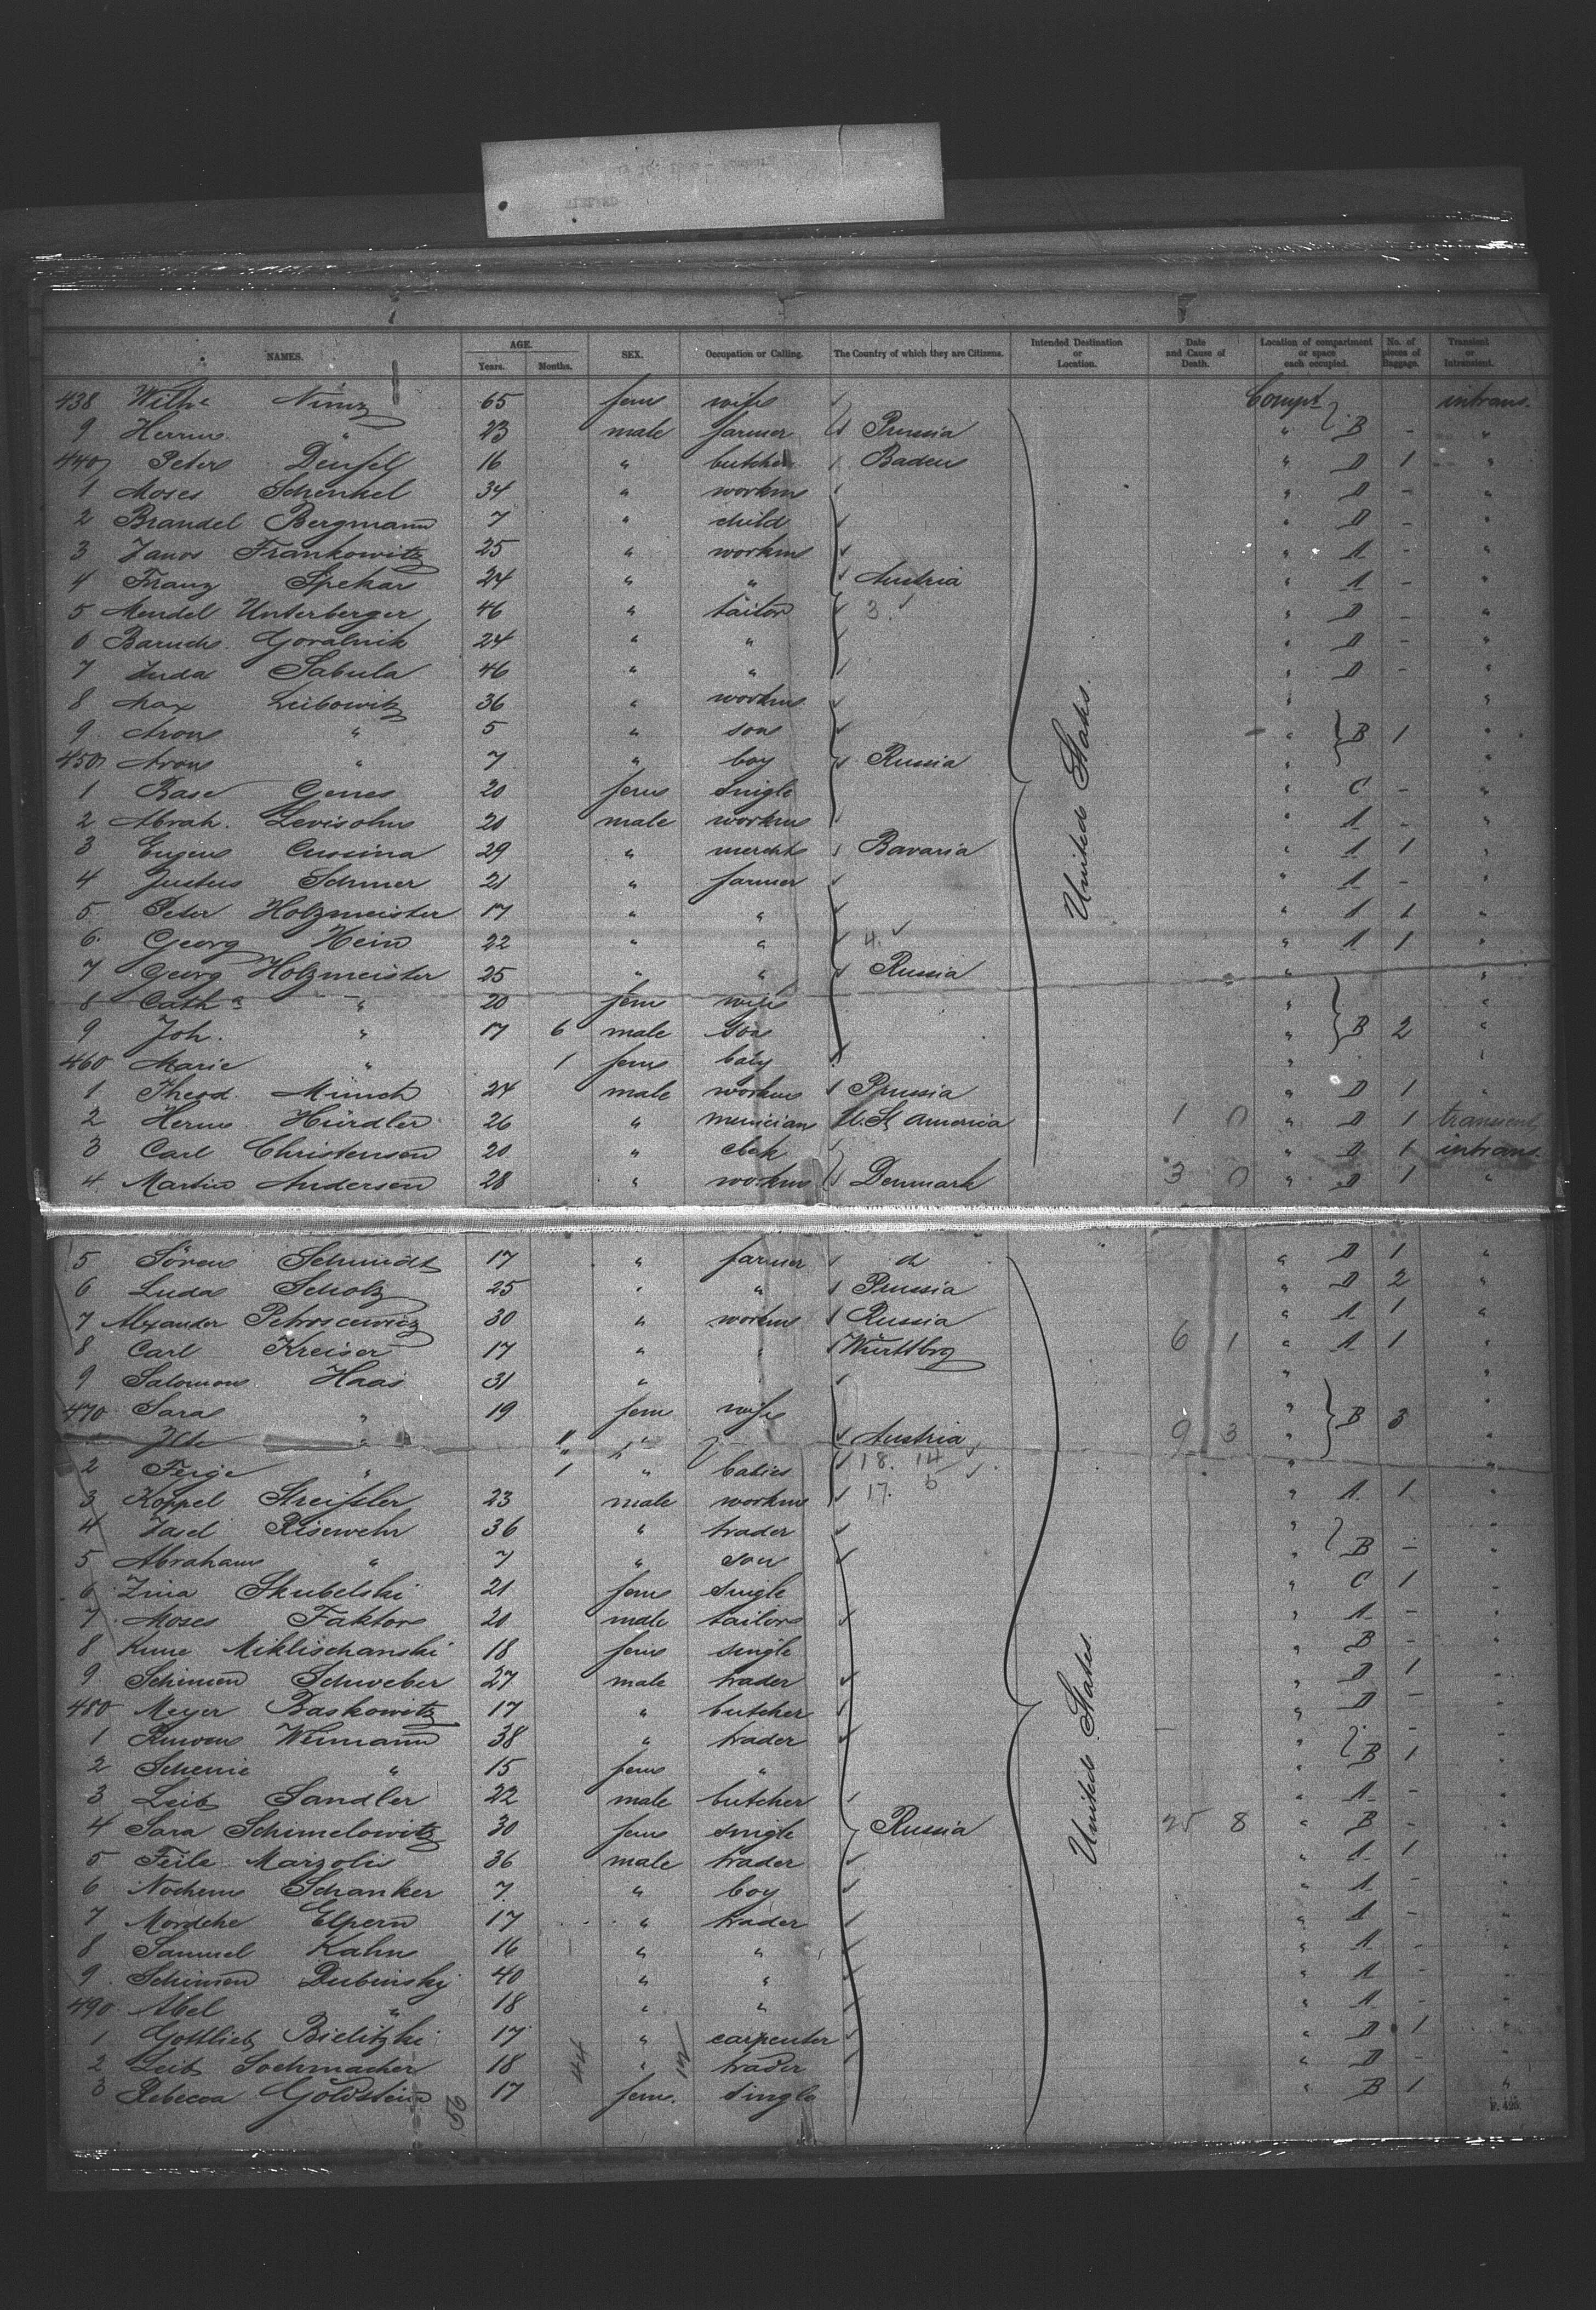 NAMES. AGE. Years. Months. SEX. Occupation or Calling. The Country of which they are Citizens. Intended Destination or Location. Date and Cause of Death. Location of compartment or space each occupied. No. of pieces of Baggage. Transient or Intransient.
438 65 fem wife Compt intrans.
9 Herm. " 23 male farmer Prussia " B - "
440 Peter 16 " butcher Baden " D 1 "
1 Moses Schenkel 34 " workm " D - "
2 Brandel Bergmann 7 " child " D - "
3 Janos Frankowitz 25 " workm " A - "
4 Franz Spekar 24 " " Austria " A - "
5 Mendel Unterberger 46 " tailor 3. " D - "
6 Baruch Goralnik 24 " " " D - "
7 Juda Sabula 46 " " " D - "
8 Max Leibowitz 36 " workm " "
9 Aron " 5 " son " B 1 "
450 Aron " 7 " boy Russia " "
1 Base 20 fem single " C - "
2 Abrah. Levisohn 20 male workm " A - "
3 Eugen 29 " mercht Bavaria " A 1 "
4 Justus 21 " farmer " A - "
5 Peter Holzmeister 17 " " " A 1 "
6 Georg Hein 22 " " 4. " A 1 "
7 Georg Holzmeister 25 " " Russia " "
8 Cath. " 20 fem wife " "
9 Joh. " 17 6 male son " B 2 "
460 Marie " 1 fem baby " "
1 Theod. Münch 24 male workm Prussia " D 1 "
2 Herm. Hürdler 26 " musician U. St. America 1 0 " D 1 transient
3 Carl Christensen 20 " " D 1 intrans.
4 Martin Andersen 28 " workm Denmark 3 0 " D 1 "
United States.
5 Sören Schmidt 17 " farmer " D 1 "
6 Scholz 25 " " Prussia " D 2 "
7 Alexander 30 " workm Russia " A 1 "
8 Carl Kreiser 17 " " Württbrg 6 1 " A 1 "
9 Salomon Haas 31 " " " "
470 Sara " 19 fem wife " B 3 "
" " Austria 9 3 " "
2 Feige " 1 " babies 18. 14 " "
3 Koppel Streissler 23 male workm 17. 5 " A 1 "
4 36 " trader " "
5 Abraham " 7 " son " B - "
6 Zina Skubelski 21 fem single " C 1 "
7 Moses Faktor 20 male tailor " A - "
8 Miklischanski 18 fem single " B - "
9 Schimen Schweber 27 male trader " D 1 "
480 Meyer Baskowitz 17 " butcher " D - "
1 38 " trader " - "
2 " 15 fem " " B 1 "
3 Leib Sandler 22 male butcher " A - "
4 Sara Schimelowitz 30 fem single Russia 25 8 " B - "
5 Feile 36 male trader " A 1 "
6 Nochem Schanker 7 " boy " A - "
7 Mordche Elpern 17 " trader " A - "
8 Samuel Kahn 16 " " " A - "
9 Schimen Dubinsky 40 " " " A - "
490 Abel " 18 " " " A - "
1 Gottlieb Bielitzki 17 " carpenter " D 1 "
2 Leib 18 " trader " D - "
3 Rebecca Goldstein 17 fem. single " B 1 "
United States.
44 12 56